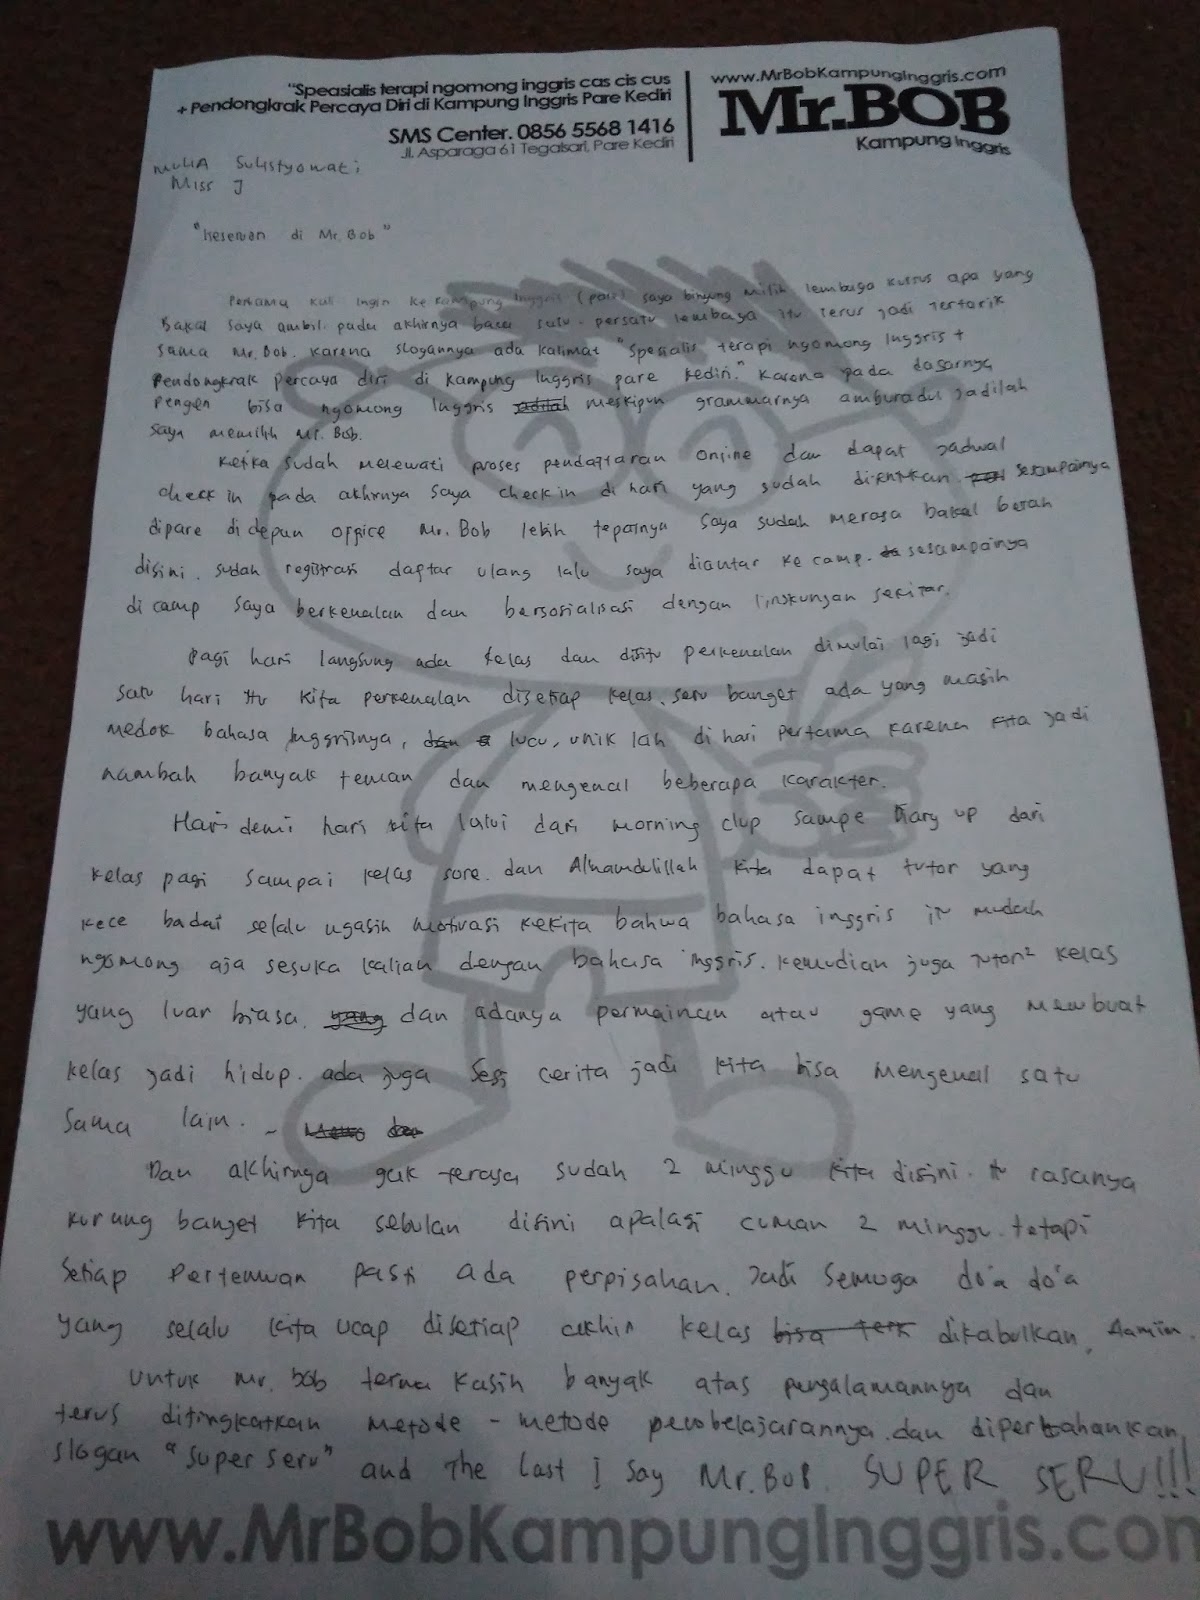 "Speasialis terapi ngomong inggris cas cis cus
+ Pendongkrak Percaya Diri di Kampung Inggris Pare Kediri
SMS Center. 0856 5568 1416
Jl. Asparaga 61 Tegalsari, Pare Kediri
www.MrBobKampungInggris.com
Mr.BOB
Kampung Inggris
MULIA Sulistyowati
Miss J
"Keseruan di Mr. Bob"
Pertama kali ingin ke kampung Inggris (pare) saya bingung milih lembaga kursus apa yang
Bakal saya ambil. pada akhirnya baca satu-persatu lembaga itu terus jadi tertarik
sama Mr. Bob. karena slogannya ada kalimat "Spesialis terapi ngomong Inggris +
Pendongkrak percaya diri di kampung Inggris pare kediri." karena pada dasarnya
pengen bisa ngomong Inggris adilah meskipun grammarnya amburadul jadilah
saya memilih Mr. Bob.
Ketika sudah melewati proses pendaftaran online dan dapat jadwal
check in pada akhirnya saya check in di hari yang sudah ditentukan. sesampainya
dipare di depan office Mr. Bob lebih tepatnya saya sudah merasa bakal betah
disini. sudah registrasi daftar ulang lalu saya diantar ke camp. sesampainya
di camp saya berkenalan dan bersosialisasi dengan lingkungan sekitar.
Pagi hari langsung ada kelas dan disitu perkenalan dimulai lagi jadi
satu hari itu kita perkenalan disetiap kelas. seru banget ada yang masih
medok bahasa Inggrisnya, dan lucu, unik lah di hari pertama karena kita jadi
nambah banyak teman dan mengenal beberapa karakter.
Hari demi hari kita lalui dari morning clup sampe Diary up dari
kelas pagi sampai kelas sore. dan Alhamdulillah kita dapat tutor yang
kece badai selalu ngasih motivasi kekita bahwa bahasa inggris itu mudah
ngomong aja sesuka kalian dengan bahasa inggris. kemudian juga tutor² kelas
yang luar biasa. yang dan adanya permainan atau game yang membuat
kelas jadi hidup. ada juga sesi cerita jadi kita bisa mengenal satu
sama lain. -
Dan akhirnya gak terasa sudah 2 minggu kita disini. itu rasanya
kurang banget kita sebulan disini apalagi cuman 2 minggu. tetapi
setiap Pertemuan pasti ada perpisahan. Jadi semoga do'a do'a
yang selalu kita ucap disetiap akhir kelas bisa terk dikabulkan. Aamiin.
Untuk Mr. bob terima kasih banyak atas pengalamannya dan
terus ditingkatkan metode - metode pembelajarannya. dan dipertahankan
slogan "super seru" and The last I say Mr. BOB. SUPER SERU!!!
www.MrBobKampungInggris.com